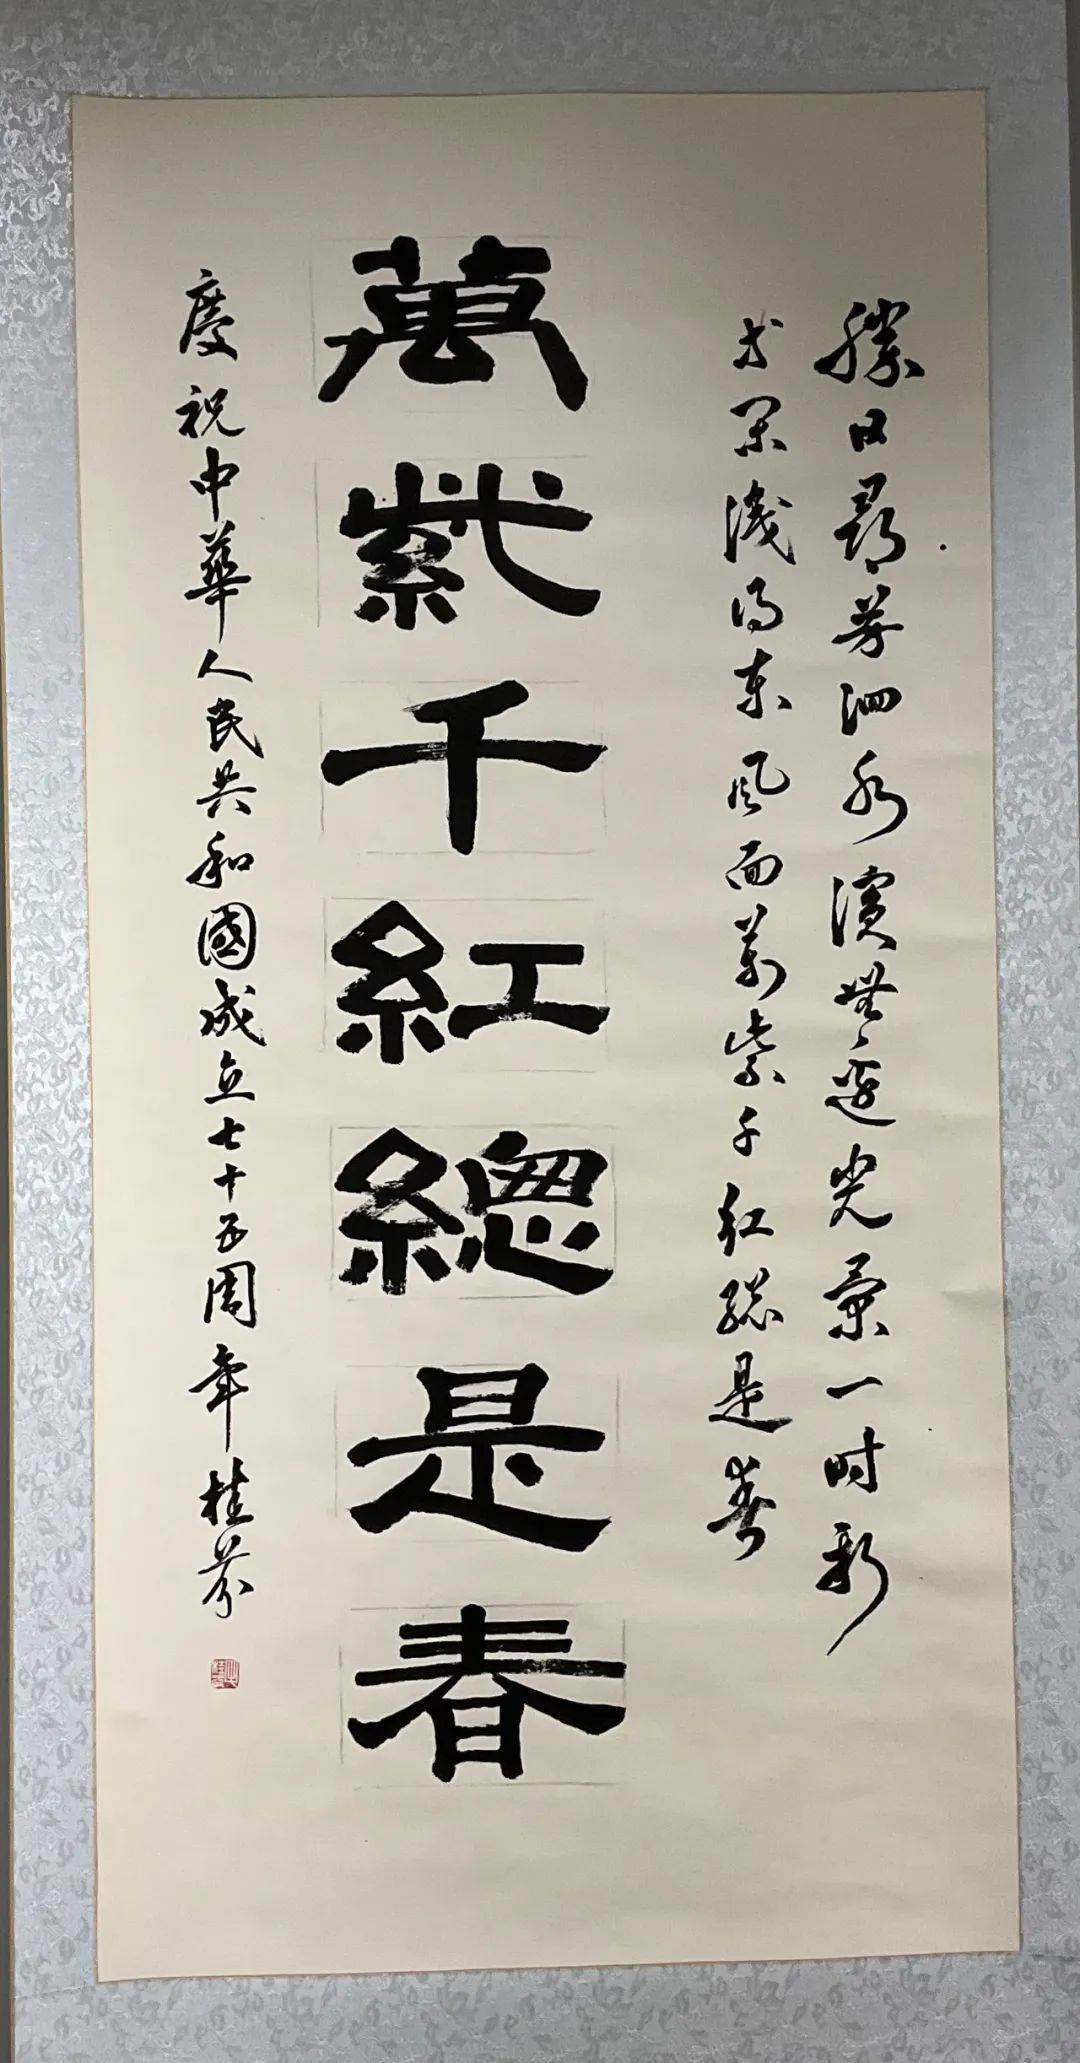 勝日尋芳泗水濱無邊光景一時新
等閒識得東風面萬紫千紅總是春
萬紫千紅總是春
慶祝中華人民共和國成立七十五周年 桂芬